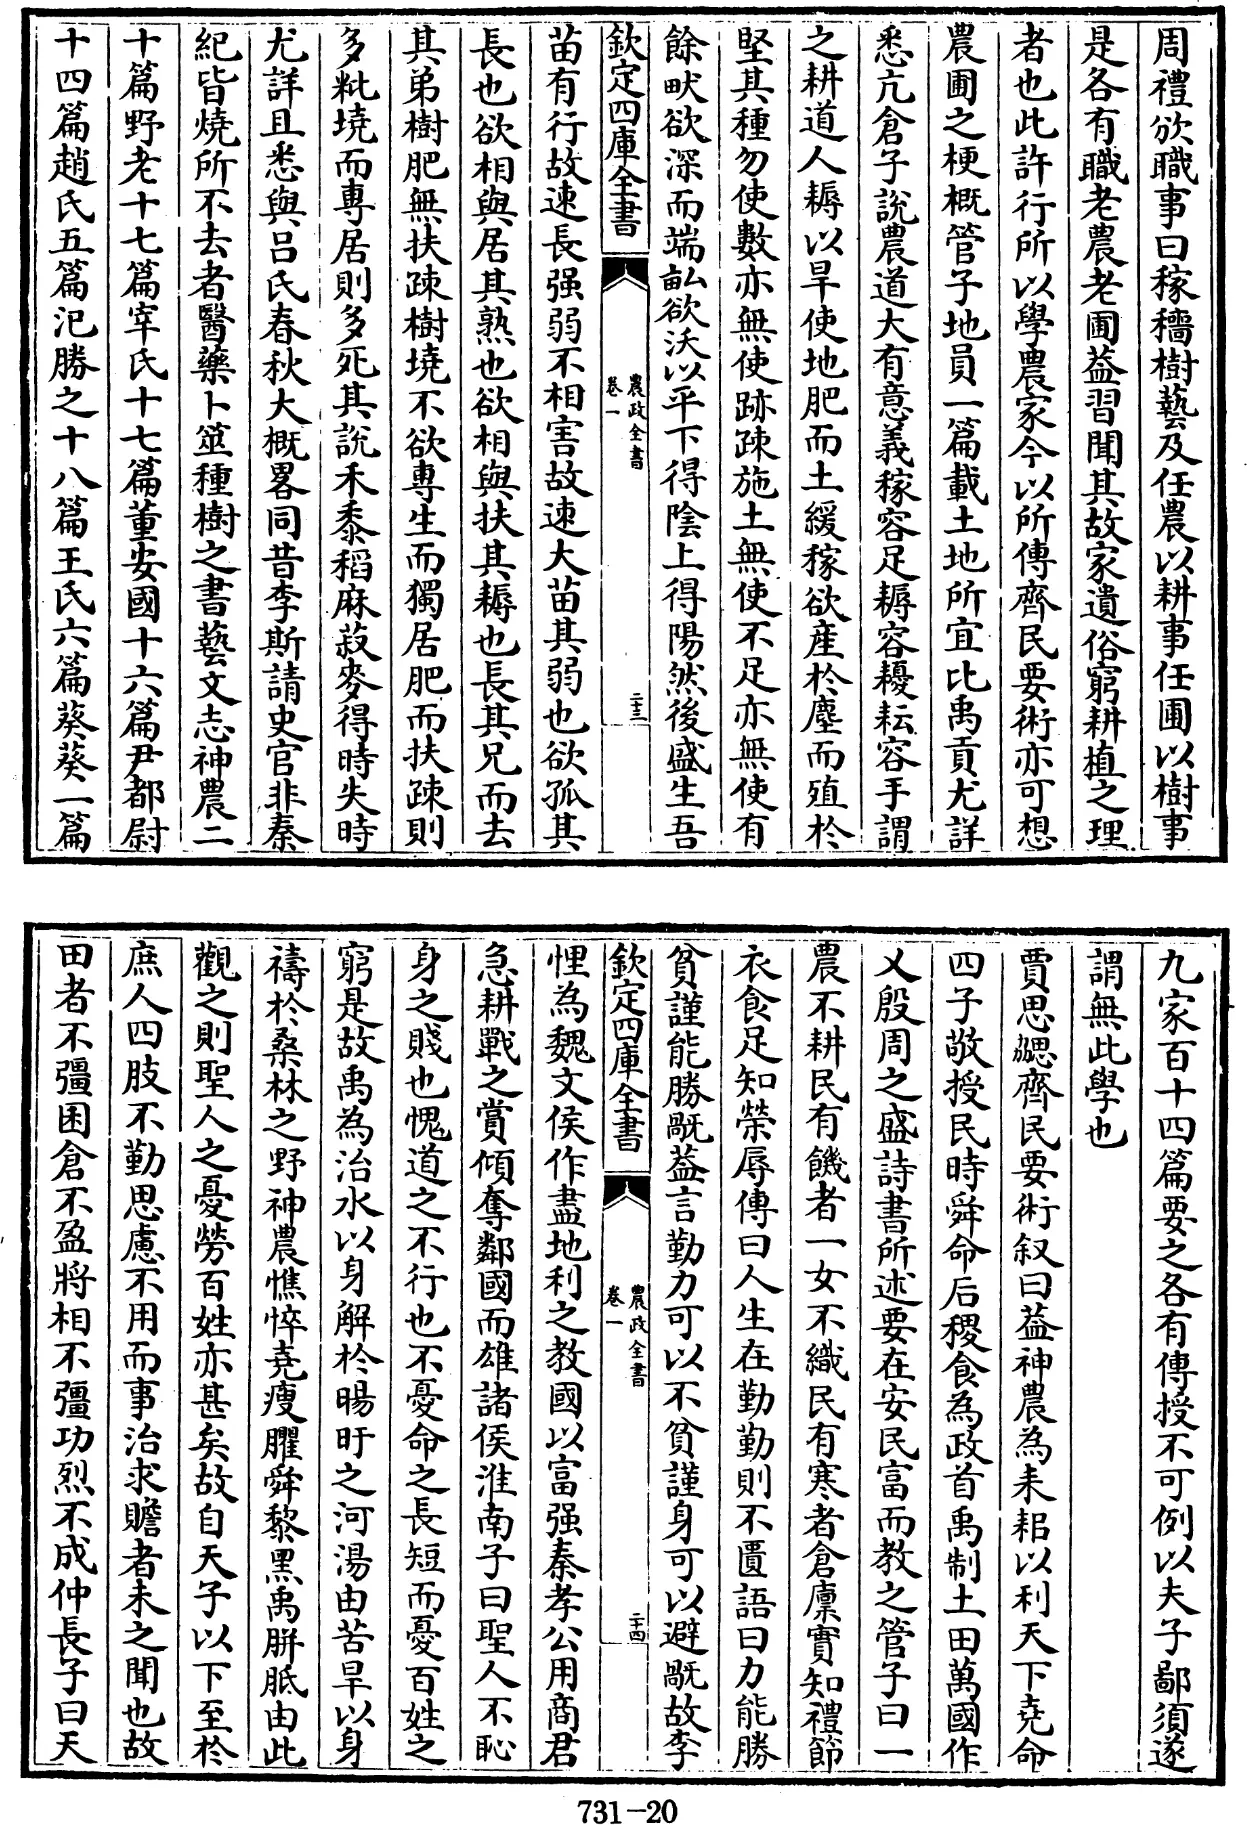 周禮欱職事曰稼穡樹藝及任農以耕事任圃以樹事
是各有職老農老圃葢習聞其故家遺俗窮耕植之理
者也此許行所以學農家今以所傳齊民要術亦可想
農圃之梗概管子地員一篇載土地所宜比禹貢尤詳
悉亢倉子說農道大有意義稼容足耨容耰耘容手謂
之耕道人耨以旱使地肥而土緩稼欲産於塵而殖於
堅其種勿使數亦無使疎施土無使不足亦無使有
餘畎欲深而端畝欲沃以平下得陰上得陽然後盛生吾
欽定四庫全書
農政全書
卷一
二十三
苗有行故速長强弱不相害故速大苗其弱也欲孤其
長也欲相與居其熟也欲相與扶其耨也長其兄而去
其弟樹肥無扶疎樹墝不欲專生而獨居肥而扶疎則
多粃墝而專居則多死其說禾黍稻麻菽麥得時失時
尤詳且悉與呂氏春秋大概畧同昔李斯請史官非秦
紀皆燒所不去者醫藥卜筮種樹之書藝文志神農二
十篇野老十七篇宰氏十七篇董安國十六篇尹都尉
十四篇趙氏五篇氾勝之十八篇王氏六篇葵葵一篇
九家百十四篇要之各有傳授不可例以夫子鄙須遂
謂無此學也
賈思勰齊民要術叙曰葢神農為耒耜以利天下堯命
四子敬授民時舜命后稷食為政首禹制土田萬國作
乂殷周之盛詩書所述要在安民富而教之管子曰一
農不耕民有饑者一女不織民有寒者倉廪實知禮節
衣食足知榮辱傳曰人生在勤勤則不匱語曰力能勝
貧謹能勝旤葢言勤力可以不貧謹身可以避旤故李
欽定四庫全書
農政全書
卷一
二十四
悝為魏文侯作盡地利之教國以富强秦孝公用商君
急耕戰之賞傾奪鄰國而雄諸侯淮南子曰聖人不恥
身之賤也愧道之不行也不憂命之長短而憂百姓之
窮是故禹為治水以身解於暘盱之河湯由苦旱以身
禱於桑林之野神農憔悴堯瘦臞舜黎黑禹胼胝由此
觀之則聖人之憂勞百姓亦甚矣故自天子以下至於
庶人四肢不勤思慮不用而事治求贍者未之聞也故
田者不彊囷倉不盈將相不彊功烈不成仲長子曰天
731-20